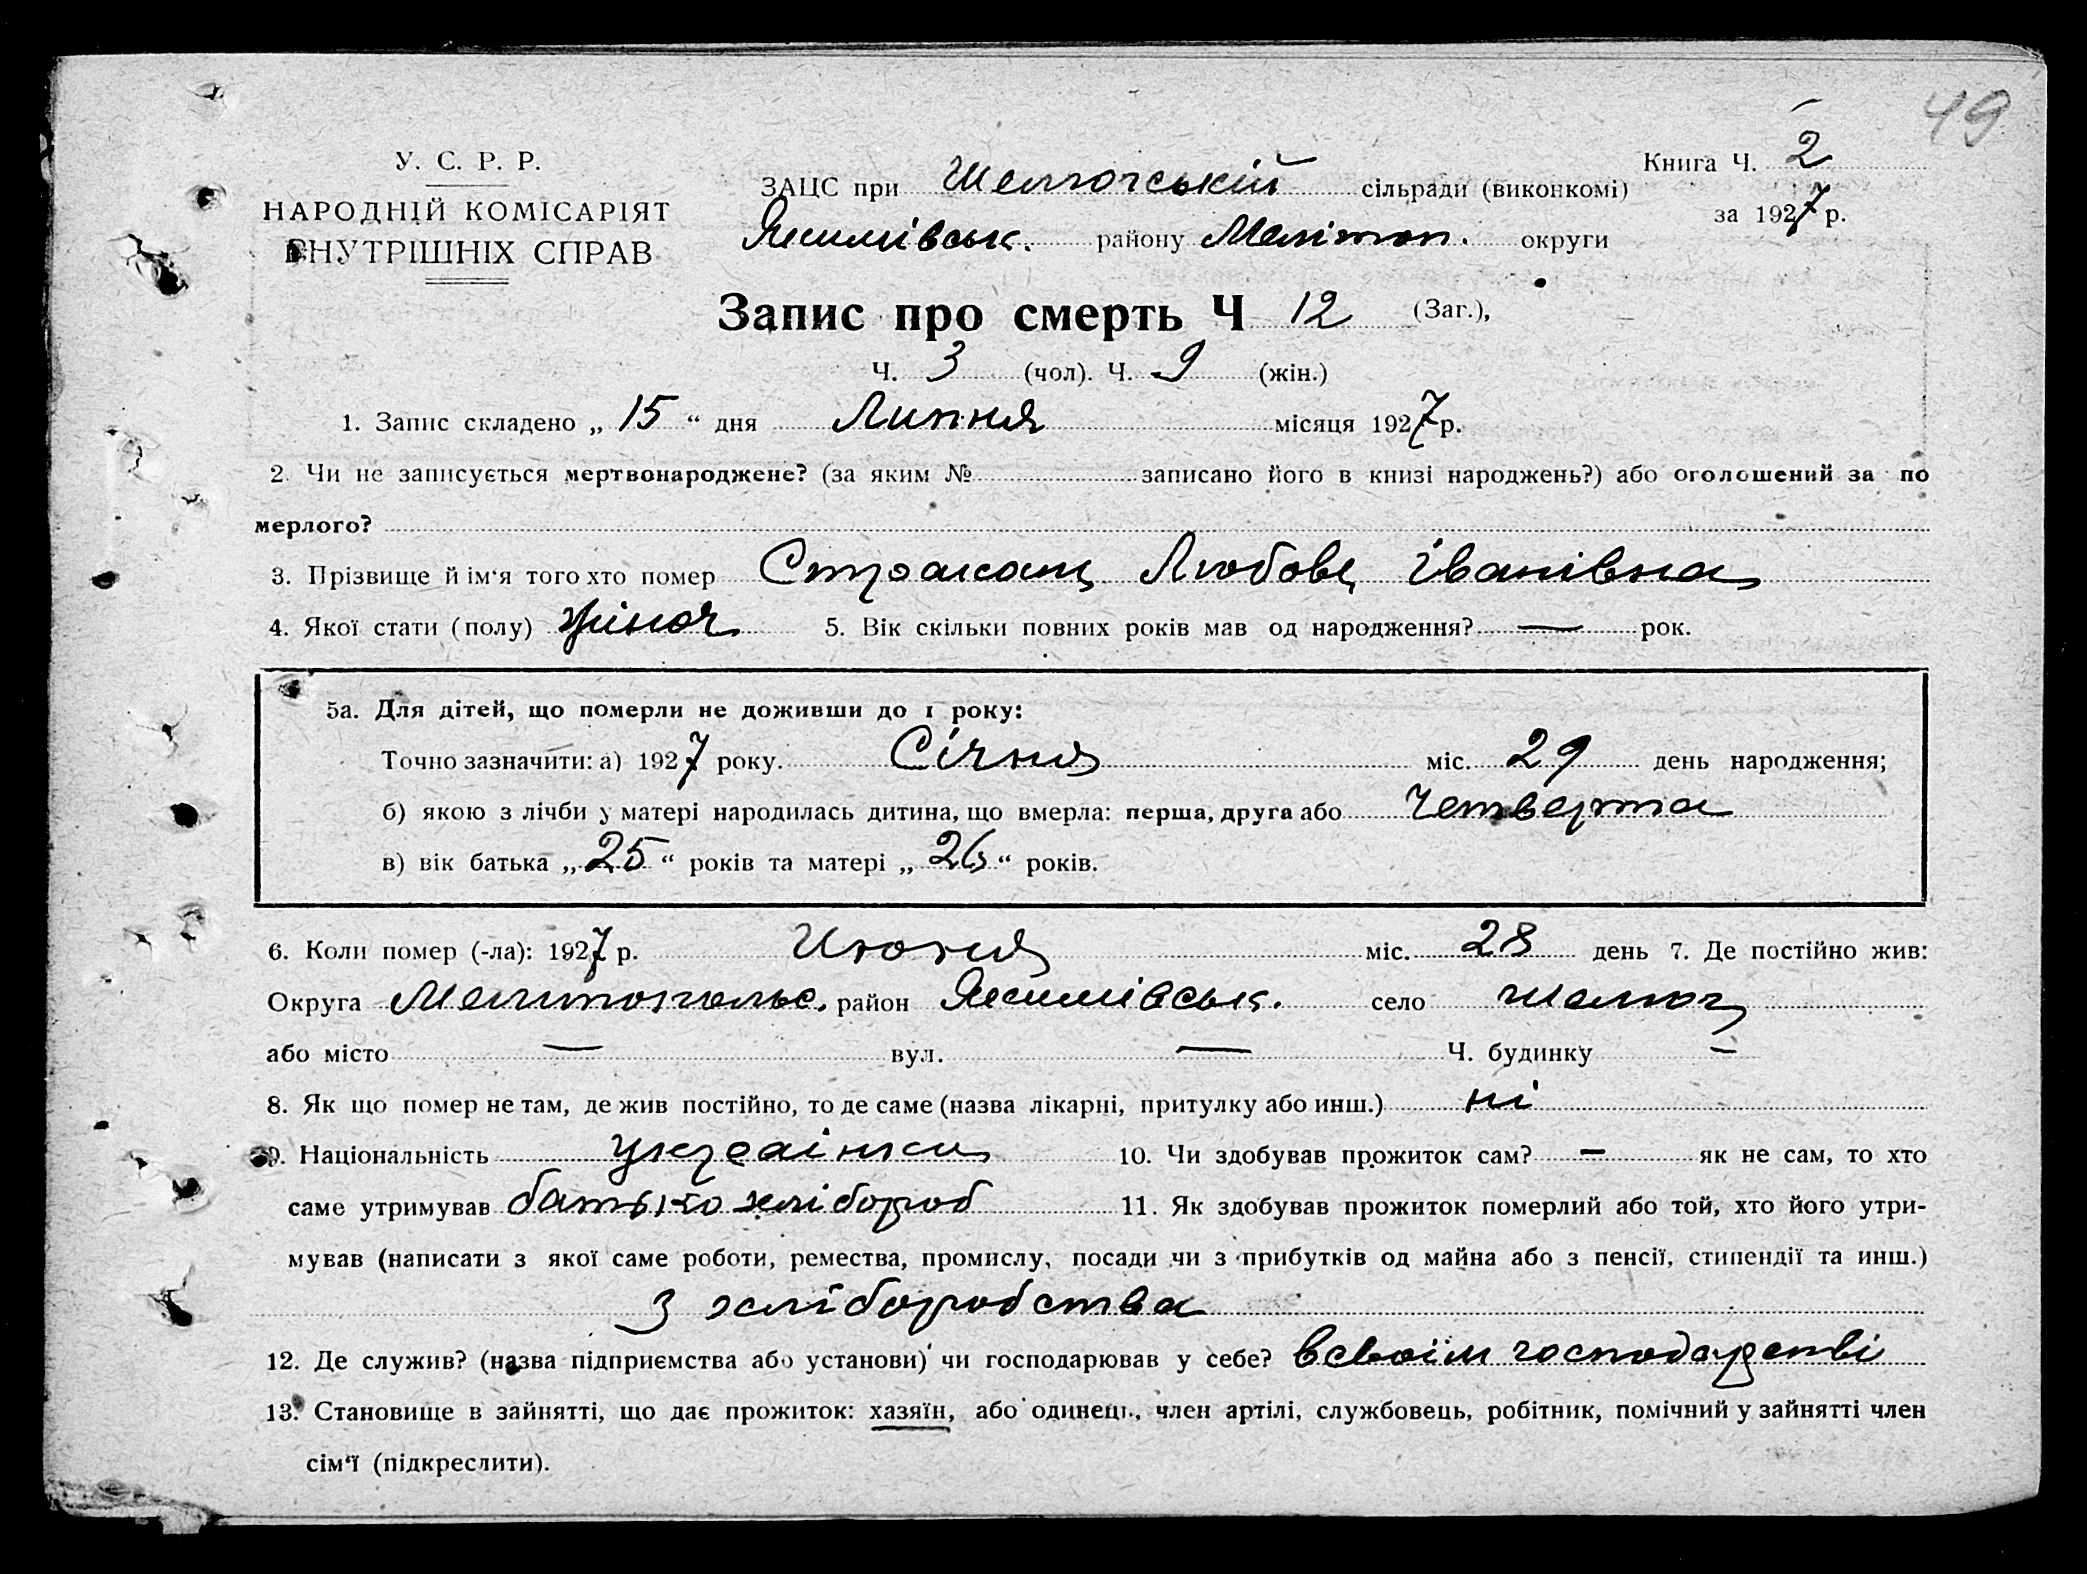 49
У. С. Р. Р.
НАРОДНІЙ КОМІСАРІЯТ
ВНУТРІШНІХ СПРАВ
Книга Ч. 2
за 1927 р.
ЗАЦС при сільради (виконкомі)
Якимівськ. району Мелітоп. округи
Запис про смерть Ч 12 (Заг.),
Ч. 3 (чол). Ч. 9 (жін.)
1. Запис складено „ 15 “ дня Липня місяця 1927 р.
2. Чи не записується мертвонароджене? (за яким № записано його в книзі народжень?) або оголошений за по
мерлого?
3. Прізвище й ім‘я того хто помер Любовь Іванівна
4. Якої стати (полу) жіноч. 5. Вік скільки повних років мав од народження? — рок.
5а. Для дітей, що померли не доживши до 1 року:
Точно зазначити: а) 1927 року. Січня міс. 29 день народження;
б) якою з лічби у матері народилась дитина, що вмерла: перша, друга або четверта
в) вік батька „ 25 “ років та матері „ 26 “ років.
6. Коли помер (-ла): 1927 р. Июня міс. 28 день 7. Де постійно жив:
Округа Мелитопольс. район Якимівськ. село
або місто — вул. — Ч. будинку —
8. Як що помер не там, де жив постійно, то де саме (назва лікарні, притулку або инш.) ні
9. Національність украінка 10. Чи здобував прожиток сам? — як не сам, то хто
саме утримував батько хлібороб 11. Як здобував прожиток померлий або той, хто його утри-
мував (написати з якої саме роботи, ремества, промислу, посади чи з прибутків од майна або з пенсії, стипендії та инш.)
з хліборобства
12. Де служив? (назва підприємства або установи) чи господарював у себе? в своїм господарстві
13. Становище в зайнятті, що дає прожиток: хазяїн, або одинець, член артілі, службовець, робітник, помічний у зайнятті член
сім‘ї (підкреслити).